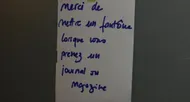 merci de
mettre un fantôme
lorsque vous
prenez un
journal ou
magazine